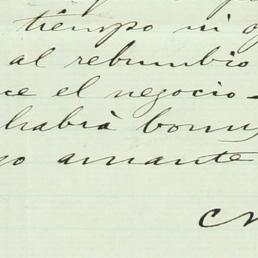 tiempo ni
al rebumbio
ce el negocio-
habrá
amante